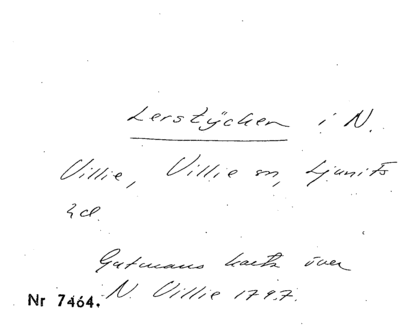 Lerstÿcken i N.
Villie, Villie sn, Ljunits
hd.
Gutmans karta över
Nr 7464. N. Villie 1797.